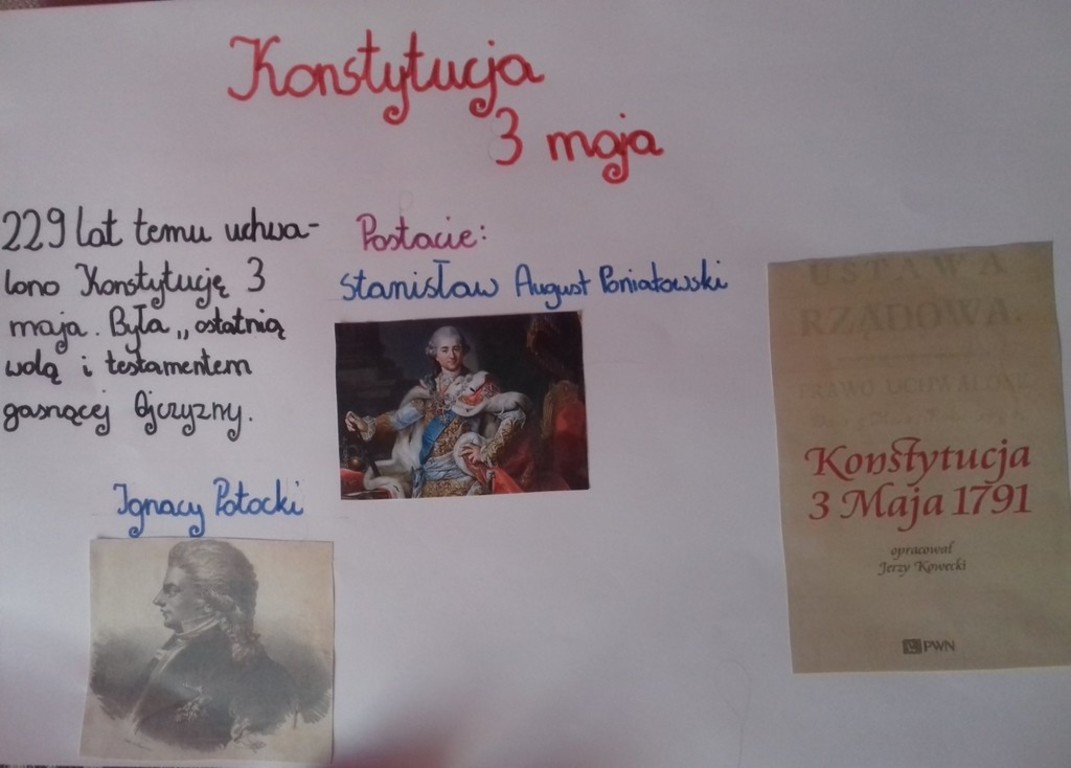 Konstytucja
3 maja
229 lat temu uchwa-
lono Konstytucję 3
maja. Była „ostatnią
wolą i testamentem
gasnącej Ojczyzny.
Postacie:
Stanisław August Poniatowski
Ignacy Potocki
USTAWA
RZĄDOWA.
PRAWO UCHWALONE
Konstytucja
3 Maja 1791
opracował
Jerzy Kowecki
PWN